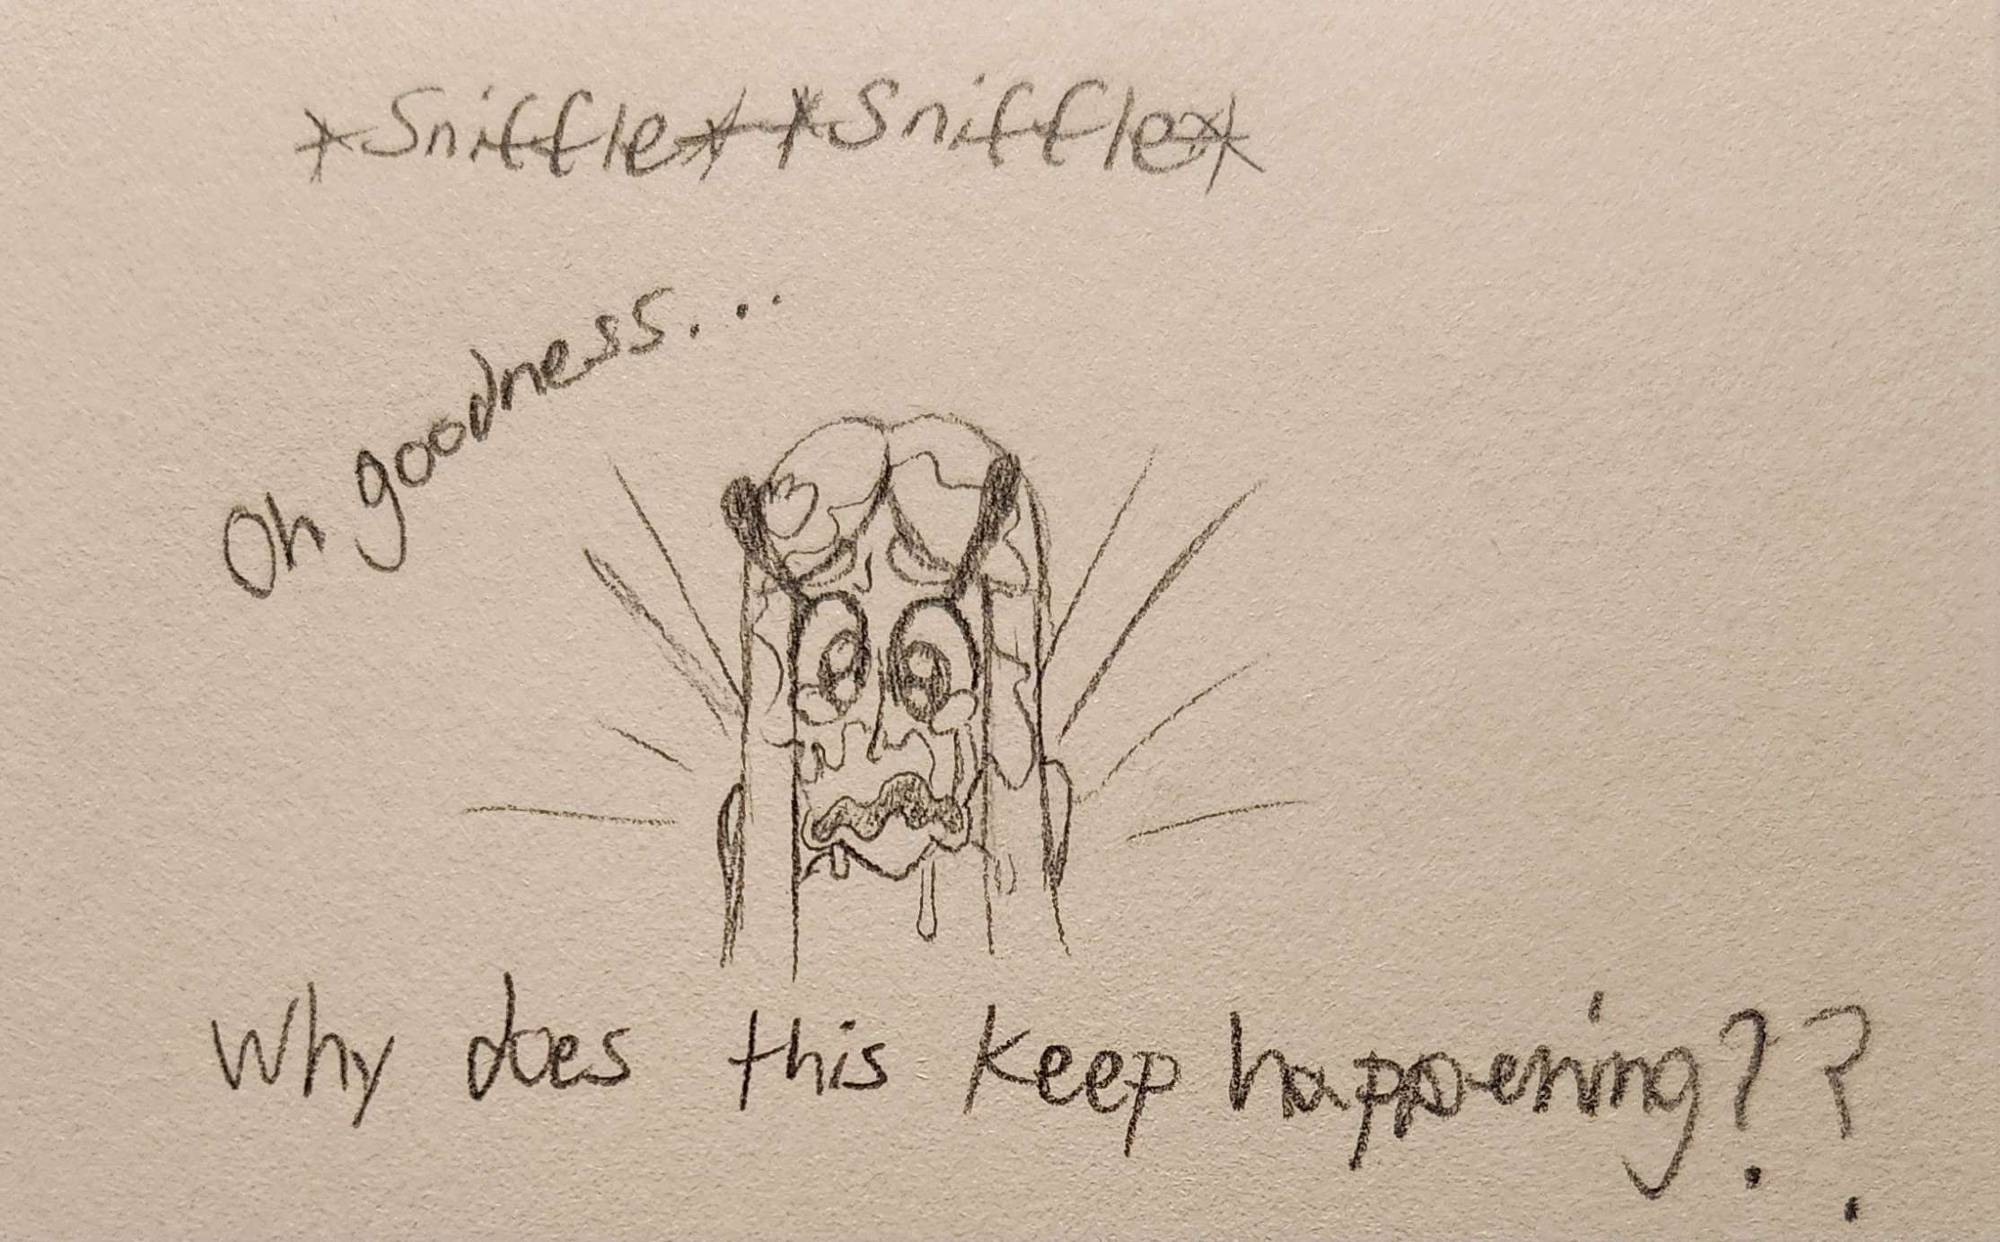 *Sniffle* *Sniffle*
Oh goodness...
Why does this keep happening??